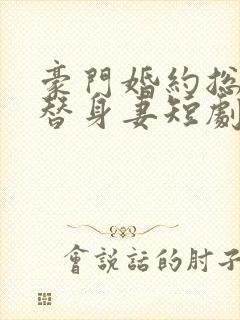 豪門婚約總
替身妻短劇
會說話的肘子